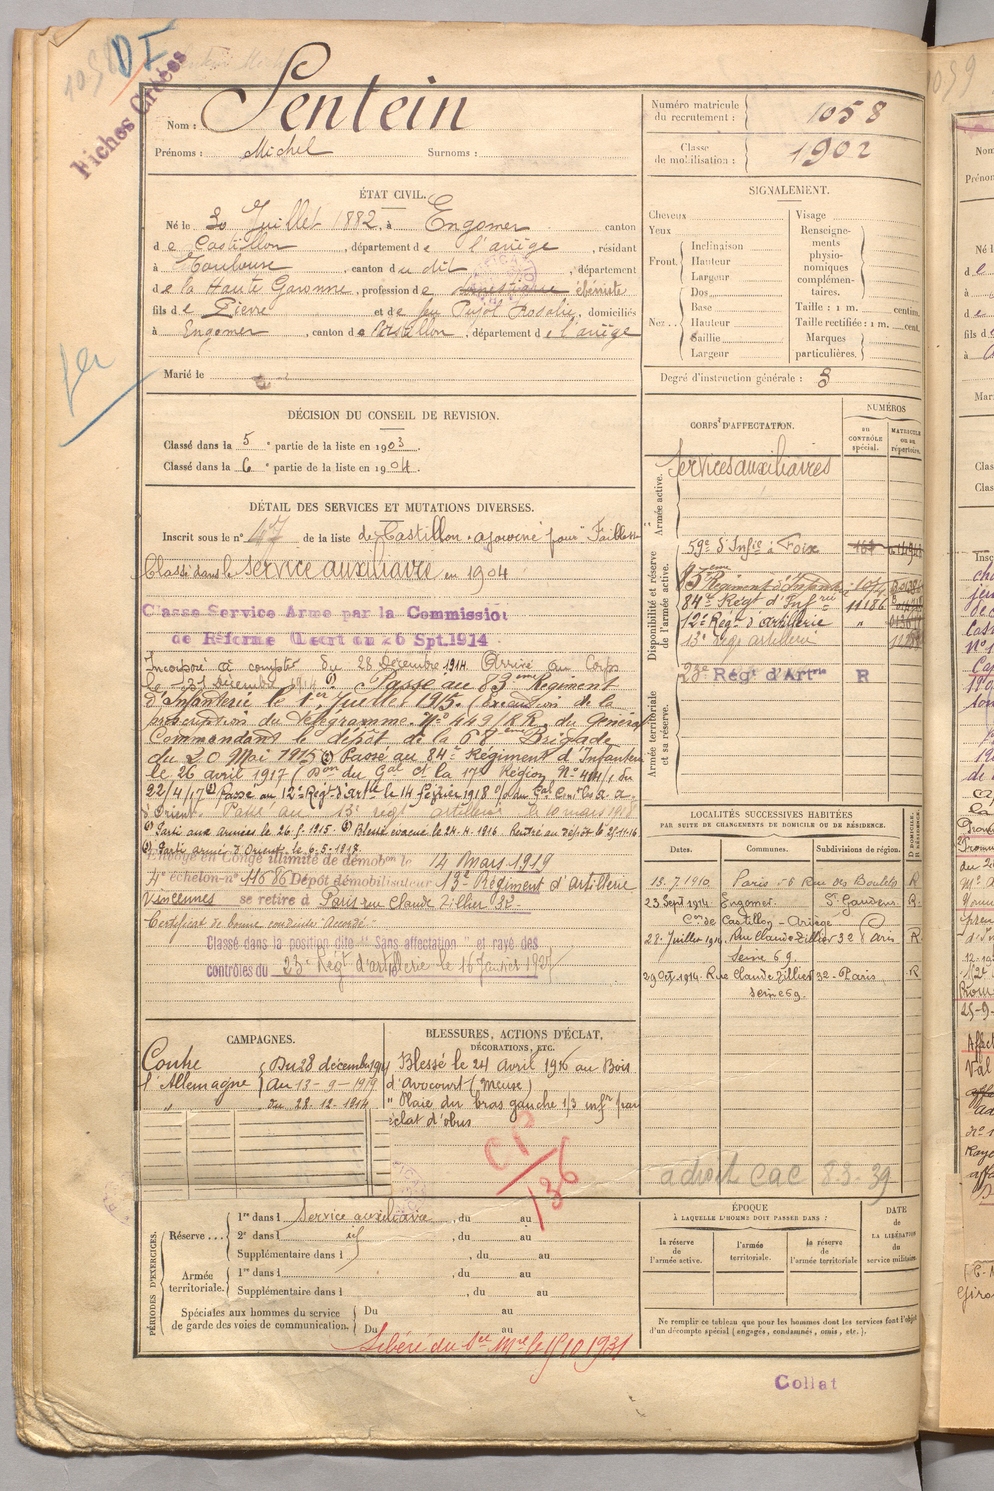 1058 DI
Fiches Créées
Nom : Sentein
Prénoms : Michel Surnoms :
Numéro matricule du recrutement : 1058
Classe de mobilisation : 1902
ÉTAT CIVIL.
Né le 30 Juillet 1882, à Engomer canton
de Castillon, département de l'ariège, résidant
à Toulouse, canton du dit, département
de la Haute Garonne, profession de ébéniste
fils de Pierre et de feu Pujol Rosalie, domiciliés
à Engomer, canton de Castillon, département de l'ariège
Marié le
SIGNALEMENT.
Cheveux
Yeux
Front. Inclinaison
Hauteur
Largeur
Nez.. Dos
Base
Hauteur
Saillie
Largeur
Visage
Renseignements physionomiques complémentaires.
Taille : 1 m. centim.
Taille rectifiée : 1 m. cent.
Marques particulières.
Degré d'instruction générale : 3
DÉCISION DU CONSEIL DE REVISION.
Classé dans la 5e partie de la liste en 1903.
Classé dans la 6e partie de la liste en 1904.
DÉTAIL DES SERVICES ET MUTATIONS DIVERSES.
Inscrit sous le n° 47 de la liste de Castillon. ajourné pour "Faiblesse
Classé dans le service auxiliaire en 1904
Classe Service Armé par la Commission
de Réforme (Décret du 26 Spt. 1914
Incorporé à compter du 28 Décembre 1914. Arrivé au Corps
le 31 décembre 1914. Passé au 83ème Régiment
d'Infanterie le 1er Juillet 1915. (Exécution de la
prescription du télégramme. N° 449/RR du Général
Commandant le dépôt de la 68ème Brigade
du 20 Mai 1915 Passé au 84e Régiment d'Infanterie
le 26 avril 1917 (Don du Gal Ct la 17e Région N° 414/1 du
22/4/17 Passé au 12e Régt d'Artie le 14 février 1918
d'Orient. Passé au 13e régt artillerie le 10 mars 1918
Parti aux armées le 26.8.1915. Blessé évacué le 24.4.1916. Rentré au dépôt le
Parti armée d'Orient le 6.5.1918.
Envoyé en Congé illimité de démobon le 14 Mars 1919
4e échelon n° 11686 Dépôt démobilisateur 13e Régiment d'Artillerie
Vincennes se retire à Paris rue Claude Tillier 32
Certificat de bonne conduite "Accordé."
Classé dans la position dite "Sans affectation" et rayé des
contrôles du 23e Régt d'artillerie le 16 Janvier 1927
CORPS D'AFFECTATION.
NUMÉROS
au CONTRÔLE spécial.
MATRICULE ou au répertoire.
Armée active.
Services auxiliaires
Disponibilité et réserve de l'armée active.
59e d'Infie à Foix
15ème Régiment d'Infanterie
84e Régt d'Infrie 11186
12e Regt d'artillerie "
13e Reg artillerie
Armée territoriale et sa réserve.
23e Régt d'Artrie R
LOCALITÉS SUCCESSIVES HABITÉES
PAR SUITE DE CHANGEMENTS DE DOMICILE OU DE RÉSIDENCE.
Dates. Communes. Subdivisions de région. D DOMICILE. R RÉSIDENCE.
13.7.1910 Paris 56 Rue des Boulets R
23 Sept 1914 Engomer St Gaudens R
Con de Castillon - Ariège
28 Juillet 1914. Rue Claude Tillier 32 Paris R
Seine 69.
29 Oct. 1914. Rue Claude Tillier 32 - Paris R
Seine 69.
a droit CaC 8.3.39
CAMPAGNES.
Contre l'Allemagne
Du 28 décembre 1914
Au 13-9-1919
" du 28.12.1914
BLESSURES, ACTIONS D'ÉCLAT,
DÉCORATIONS, ETC.
Blessé le 24 avril 1916 au Bois
d'Avocourt (Meuse)
"Plaie du bras gauche 1/3 infr par
éclat d'obus
136
PÉRIODES D'EXERCICES.
Réserve....
1re dans l Service auxiliaire, du au
2e dans l id, du au
Supplémentaire dans l, du au
Armée territoriale.
1re dans l, du au
Supplémentaire dans l, du au
Spéciales aux hommes du service de garde des voies de communication.
Du au
Du au
Libéré du Sce Mre le 15.10.1931
ÉPOQUE
À LAQUELLE L'HOMME DOIT PASSER DANS :
la réserve de l'armée active.
l'armée territoriale.
la réserve de l'armée territoriale
DATE de LA LIBÉRATION du service militaire.
Ne remplir ce tableau que pour les hommes dont les services font l'objet
d'un décompte spécial (engagés, condamnés, omis, etc.).
Collat
1059